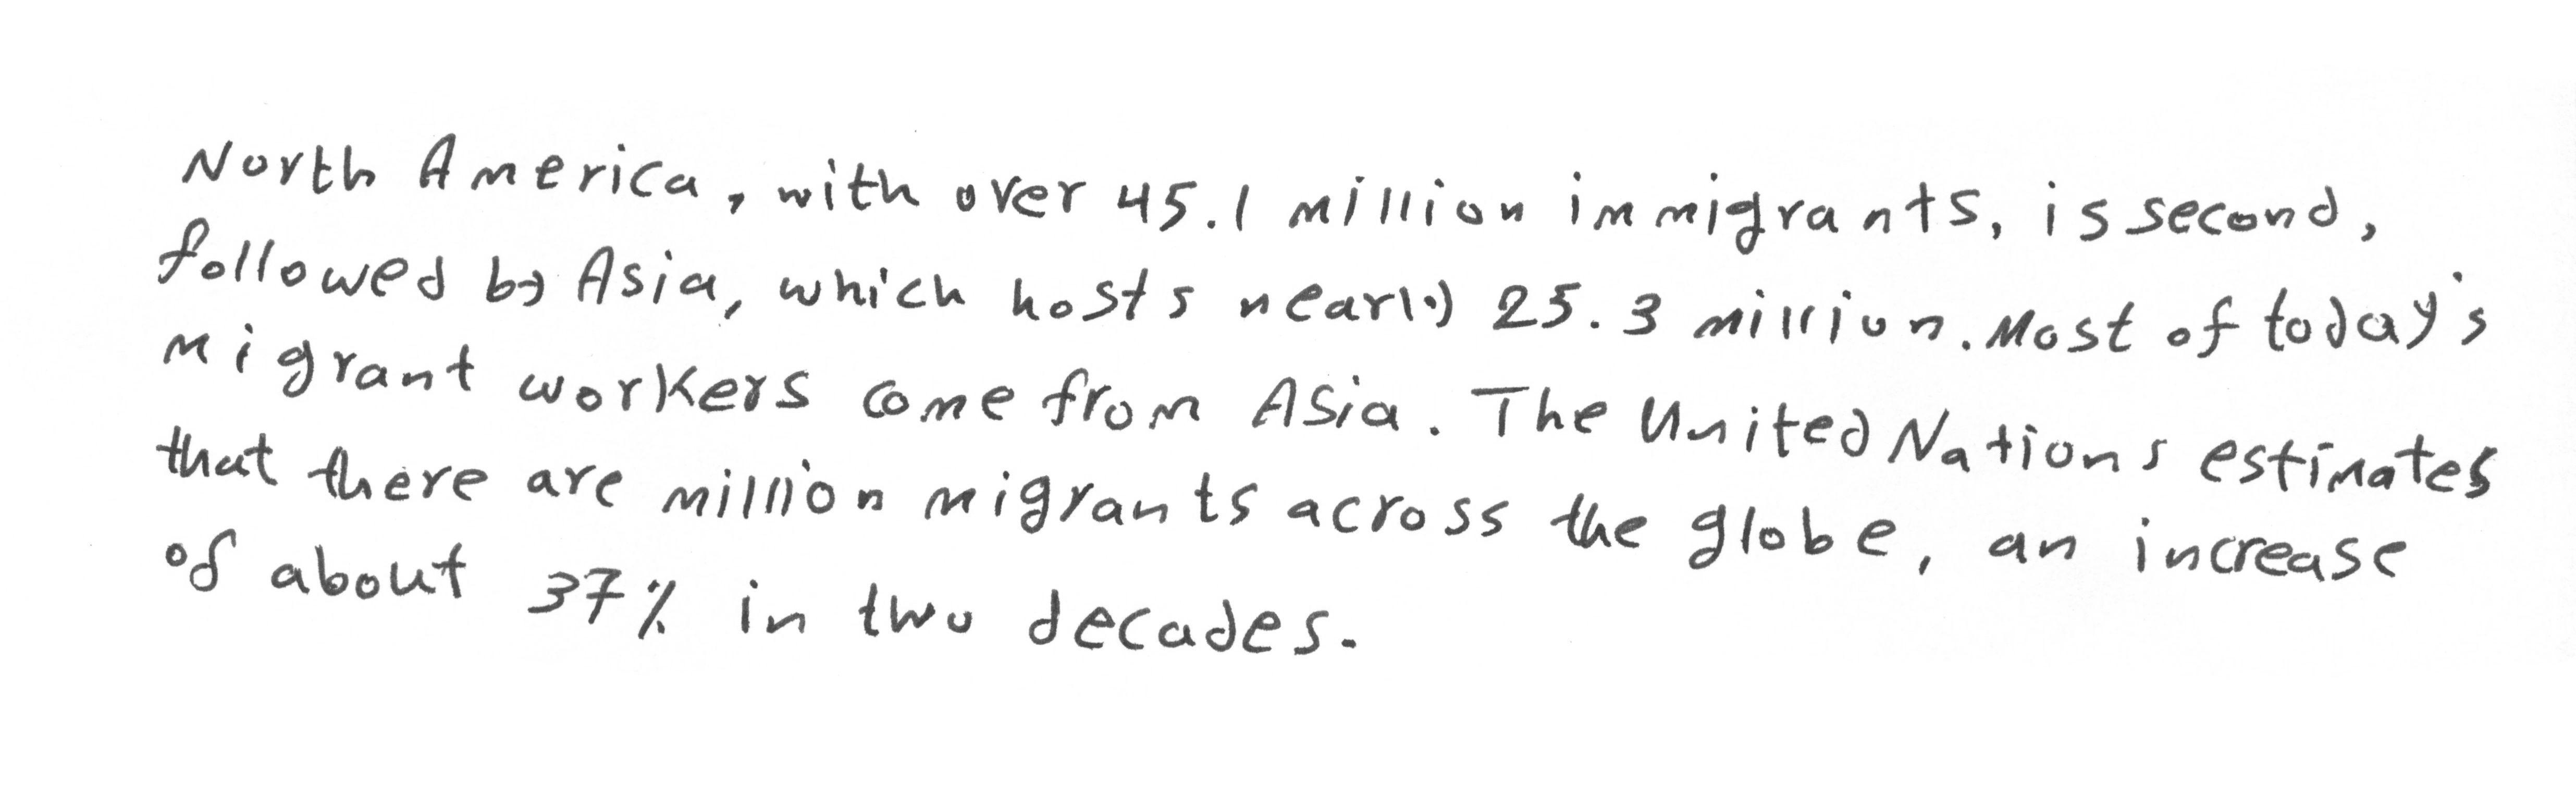 North America, with over 45.1 million immigrants, is second,
followed by Asia, which hosts nearly 25.3 million. Most of today's
migrant workers come from Asia. The United Nations estimates
that there are million migrants across the globe, an increase
of about 37% in two decades.